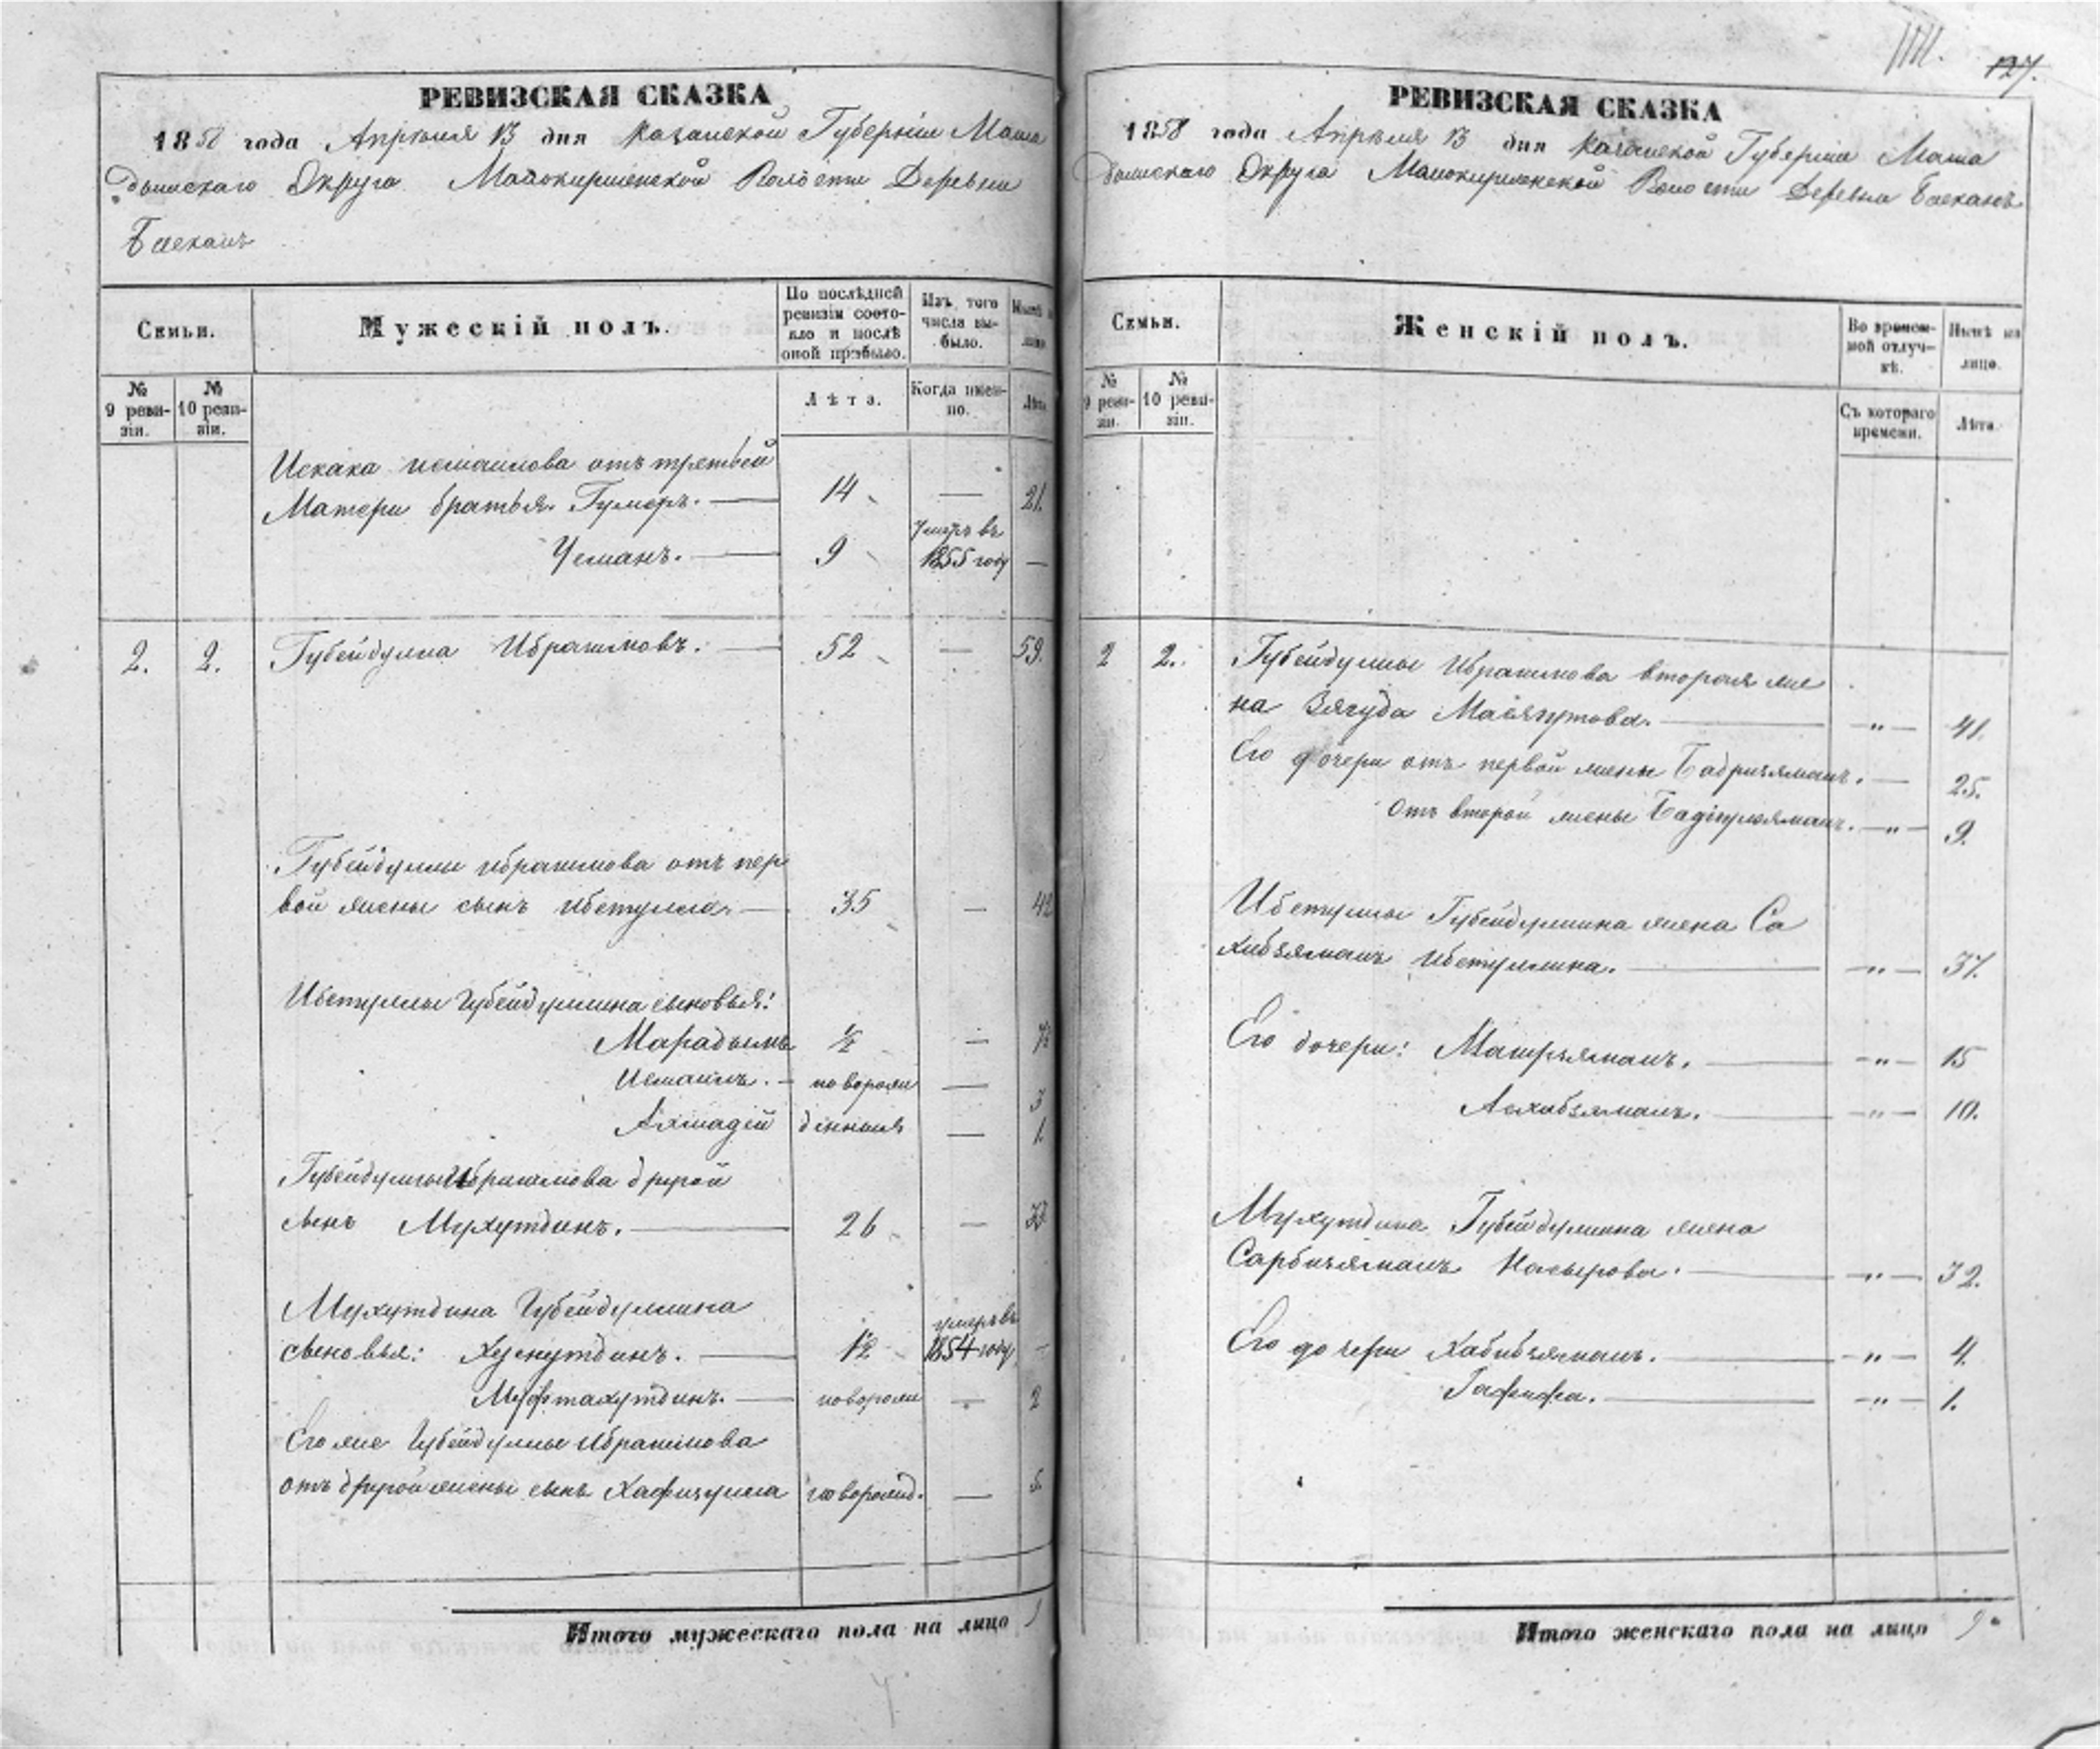 РЕВИЗСКАЯ СКАЗКА
1858 года Апреля 13 дня Казанской Губернiи Мама
дышскаго Округа Малокирменской Волости Деревни
Баекапъ
Семьи.
Мужескій полъ.
По послѣдней ревизіи состояло и послѣ оной прибыло.
Изъ того числа выбыло.
Нынѣ на лицо
№ 9 ревизіи.
№ 10 ревизіи.
Лѣта.
Когда именно.
Лѣта.
Искака исмаилова отъ третьей
Матери братья. Гумеръ. — 14 — 21.
умеръ въ
Усманъ. — 9 1855 году —
2. 2. Губейдулла Ибрагимовъ. — 52 — 59.
Губейдуллы ибрагимова отъ пер
вой жены сынъ ибетулла. — 35 — 42
Ибетуллы Губейдуллина сыновья:
Марадымъ ½ — 7½
Исмаилъ. — новорож — 3
Ахмадій денныя — 1.
Губейдуллы Ибрагимова другой
сынъ Мухутдинъ. — 26 — 33
Мухутдина Губейдуллина
умеръ въ
сыновья: Хуснутдинъ. — 1½ 1854 году —
Муфтахутдинъ. — новорож — 2
Его же Губейдуллы ибрагимова
отъ другой жены сынъ Хафизулла новорожд. — 5.
Итого мужескаго пола на лицо
127.
РЕВИЗСКАЯ СКАЗКА
1858 года Апреля 13 дня Казанской Губернiи Мама
дышскаго Округа Малокирменской Волости Деревни Баекапъ
Семьи.
Женскій полъ.
Во временной отлучкѣ.
Нынѣ на лицо.
№ 9 ревизіи.
№ 10 ревизіи.
Съ котораго времени.
Лѣта.
2 2. Губейдуллы Ибрагимова вторая же
на Зягуда Масягутова. — " — 41.
Его дочери отъ первой жены Бадризяманъ. — 25.
Отъ второй жены Бадигузяманъ. — " — 9.
Ибетуллы Губейдуллина жена Са
хибзяманъ ибетуллина. — " — 37.
Его дочери: Магирзяманъ. — " — 15
Асхабзяманъ. — " — 10.
Мухутдина Губейдуллина жена
Сарбизяманъ Насырова. — " — 32.
Его дочери Хабибзяманъ. — " — 4.
Гафифа. — " — 1.
Итого женскаго пола на лицо 9